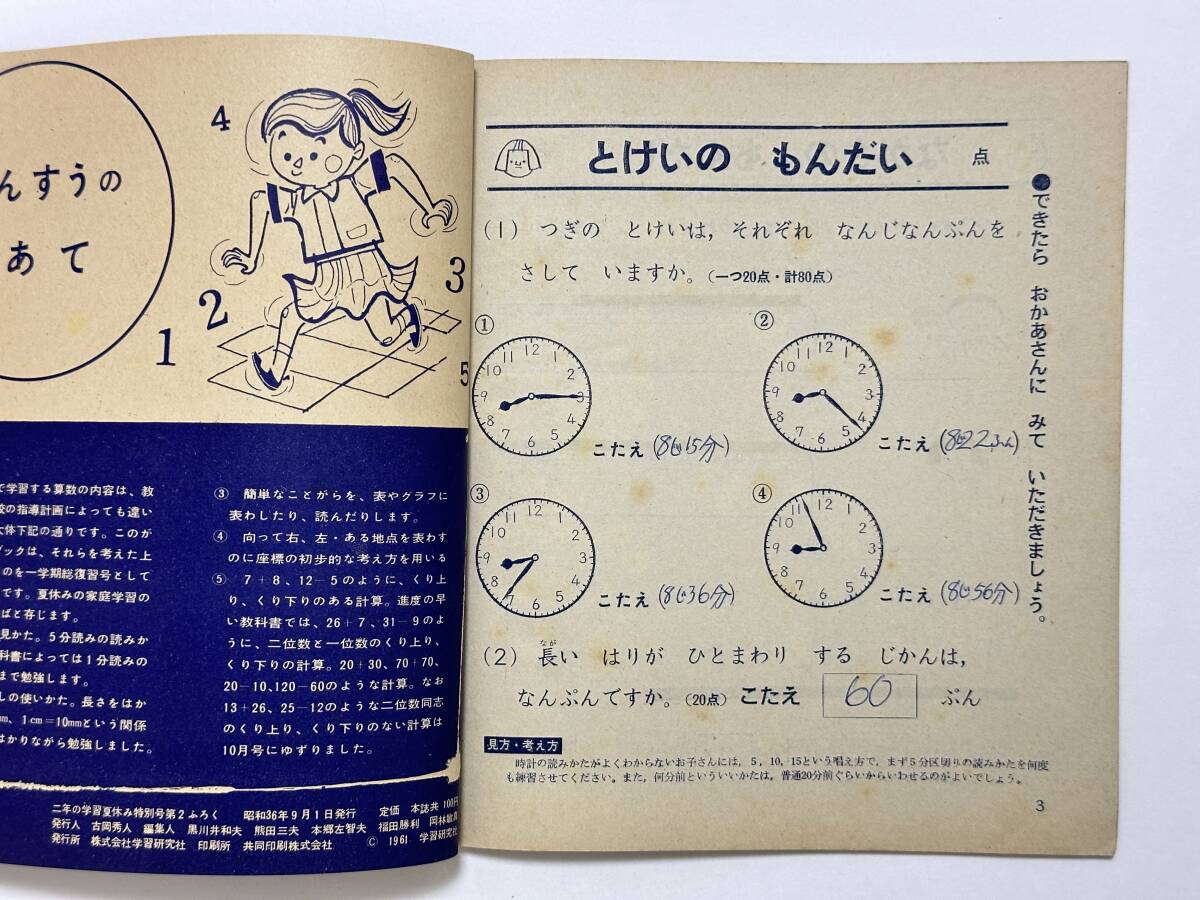 んすうの
あて
4
3
2
1
5
で学習する算数の内容は、教
校の指導計画によっても違い
大体下記の通りです。このが
ブックは、それらを考えた上
のを一学期総復習号として
です。夏休みの家庭学習の
ばと存じます。
見かた。5分読みの読みか
科書によっては1分読みの
まで勉強します。
しの使いかた。長さをはか
mm、1cm=10mmという関係
はかりながら勉強しました。
③ 簡単なことがらを、表やグラフに
表わしたり、読んだりします。
④ 向って右、左・ある地点を表わす
のに座標の初歩的な考え方を用いる
⑤ 7+8、12-5のように、くり上
り、くり下りのある計算。進度の早
い教科書では、26+7、31-9のよ
うに、二位数と一位数のくり上り、
くり下りの計算。20+30、70+70、
20-10、120-60のような計算。なお
13+26、25-12のような二位数同志
のくり上り、くり下りのない計算は
10月号にゆずりました。
二年の学習夏休み特別号第2ふろく 昭和36年9月1日発行 定価 本誌共 100円
発行人 古岡秀人 編集人 黒川井和夫 熊田三夫 本郷左智夫 福田勝利 岡林敏眞
発行所 株式会社学習研究社 印刷所 共同印刷株式会社 © 1961 学習研究社
とけいの もんだい 点
(1) つぎの とけいは, それぞれ なんじなんぷんを
さして いますか。(一つ20点・計80点)
①
12
1
2
3
4
5
6
7
8
9
10
11
こたえ (8じ15分)
②
12
1
2
3
4
5
6
7
8
9
10
11
こたえ (8じ22ふん)
③
12
1
2
3
4
5
6
7
8
9
10
11
こたえ (8じ36分)
④
12
1
2
3
4
5
6
7
8
9
10
11
こたえ (8じ56分)
(2) 長い はりが ひとまわり する じかんは,
なが
なんぷんですか。(20点) こたえ 60 ぷん
見方・考え方
時計の読みかたがよくわからないお子さんには, 5, 10, 15という唱え方で, まず5分区切りの読みかたを何度
も練習させてください。また, 何分前といういいかたは, 普通20分前ぐらいからいわせるのがよいでしょう。
3
●できたら おかあさんに みて いただきましょう。